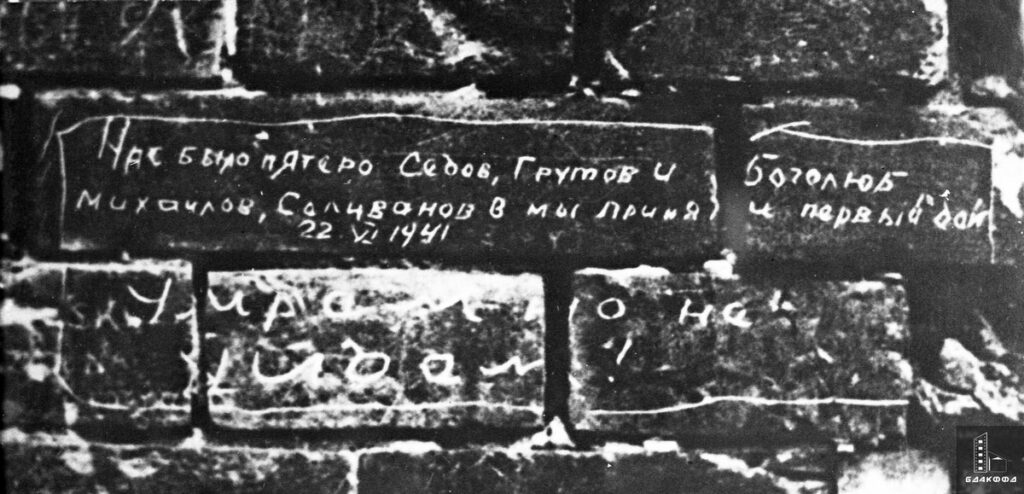 Нас было пятеро Седов, Грутов и Боголюб
Михаилов, Селиванов В мы приня и первый бой
22 VI 1941
Умрем но не
уйдем!